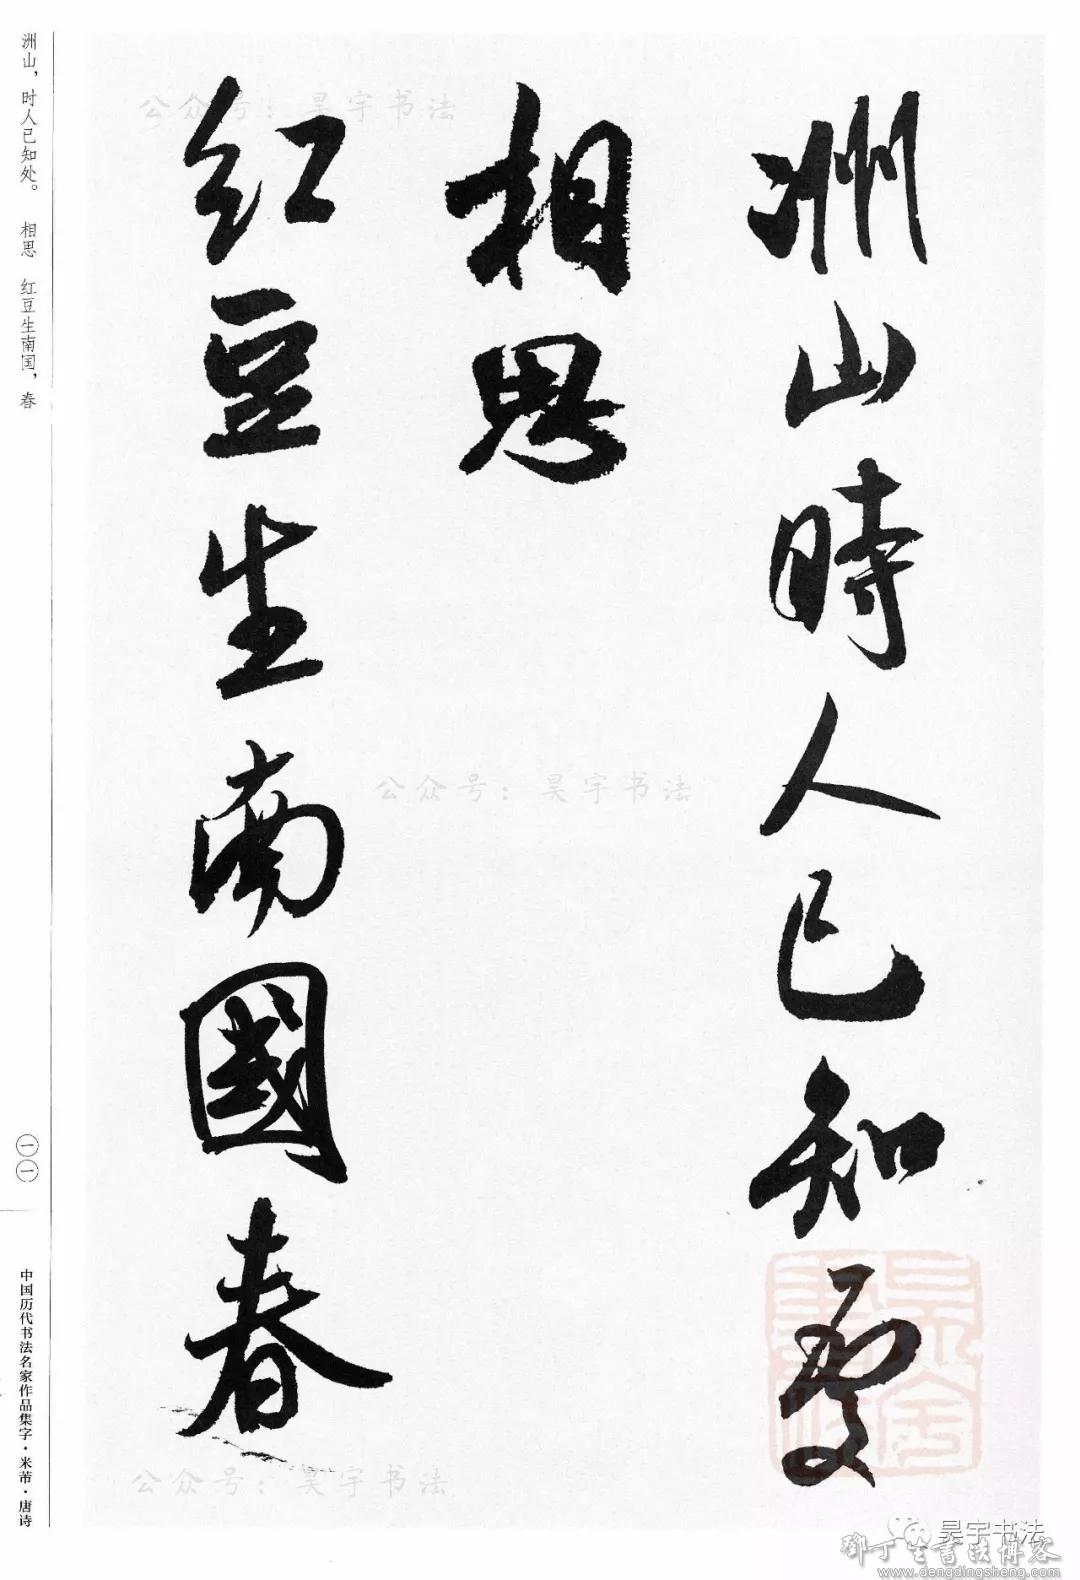 洲山時人已知處
相思
红豆生南國春
洲山，时人已知处。 相思 红豆生南国，春
一一
中国历代书法名家作品集字·米芾·唐诗
公众号：昊宇书法
公众号：昊宇书法
公众号：昊宇书法
昊宇书法
昊宇书法
鄧丁生書法博客
www.dengdingsheng.com